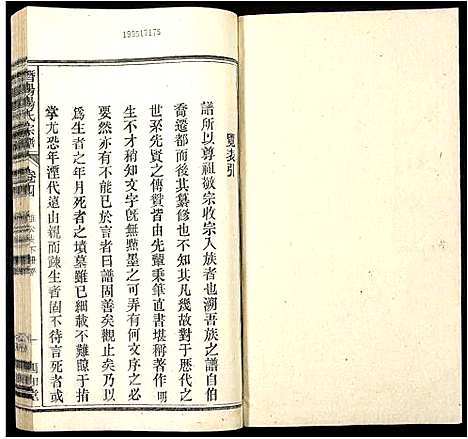 199517175
覽表引
譜所以尊祖敬宗收宗入族者也溯吾族之譜自伯
喬遷都而後其纂修也不一其凡幾故對于歷代之
世系先賢之傳贊皆由先輩秉筆直書堪稱著作明
生不才稍知文字旣無點墨之可弄有何文序之必
要然亦有不能已於言者曰譜固善矣觀止矣乃以
爲生者之年月死者之墳墓雖已細載不難瞭于指
掌尤恐年湮代遠山龍而疎生者固不待言死者或
楊氏宗譜
卷四